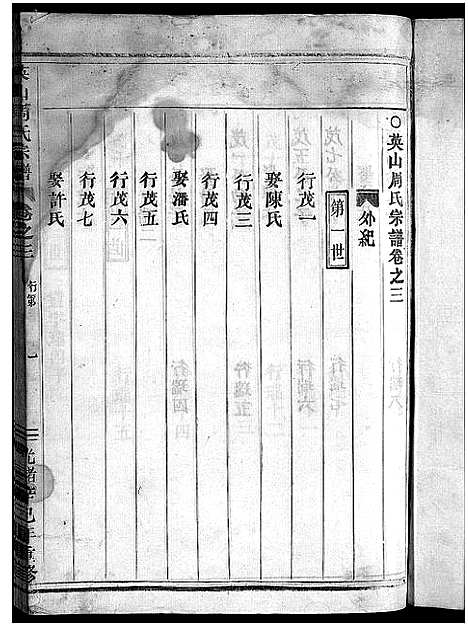 ○英山周氏宗譜卷之三
外紀
第一世
行茂一
娶陳氏
行茂三
行茂四
娶潘氏
行茂五
行茂六
行茂七
娶許氏
英山周氏宗譜
卷之三
行第
光緒辛巳年重修